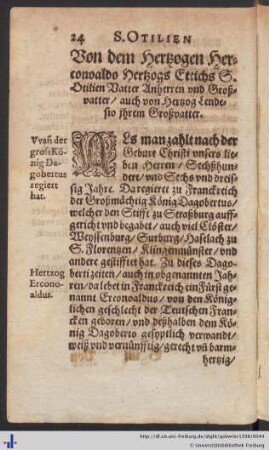 24 S. OTILIEN
Von dem Hertzogen Her-
conoaldo Hertzogs Etichs S.
Otilien Vatter Anherren vnd Groß-
vatter / auch von Hertzog Lende-
sio jhrem Großvatter.
Wañ der
groß Kö-
nig Da-
gobertus
regiert
hat.
ALs man zahlt nach der
Geburt Christi vnsers lie-
ben Herren / Sechßhun-
dert / vnd Sechs vnd dreis-
sig Jahre. Da regieret zu Franckreich
der Großmächtig König Dagobertus /
welcher den Stifft zu Straßburg auff-
gericht vnd begabet / auch viel Clöster /
Weyssenburg / Surburg / Haselach zu
S. Florentzen / Klingenmünster / vnd
andere gestifftet hat. Zu dieses Dago-
berti zeiten / auch in obgenannten Jah-
ren / da lebet in Franckreich ein Fürst ge-
nannt Erconoaldus / von den König-
lichen geschlecht der Teutschen Fran-
cken geboren / vnd deßhalben dem Kö-
nig Dagoberto gesipptlich verwandt /
weiß vnd vernünfftig / gerecht vñ barm-
hertzig /
Hertzog
Ercono-
aldus.
http://dl.ub.uni-freiburg.de/diglit/
© Universitätsbibliothek Freiburg
Universitätsbibliothek Freiburg